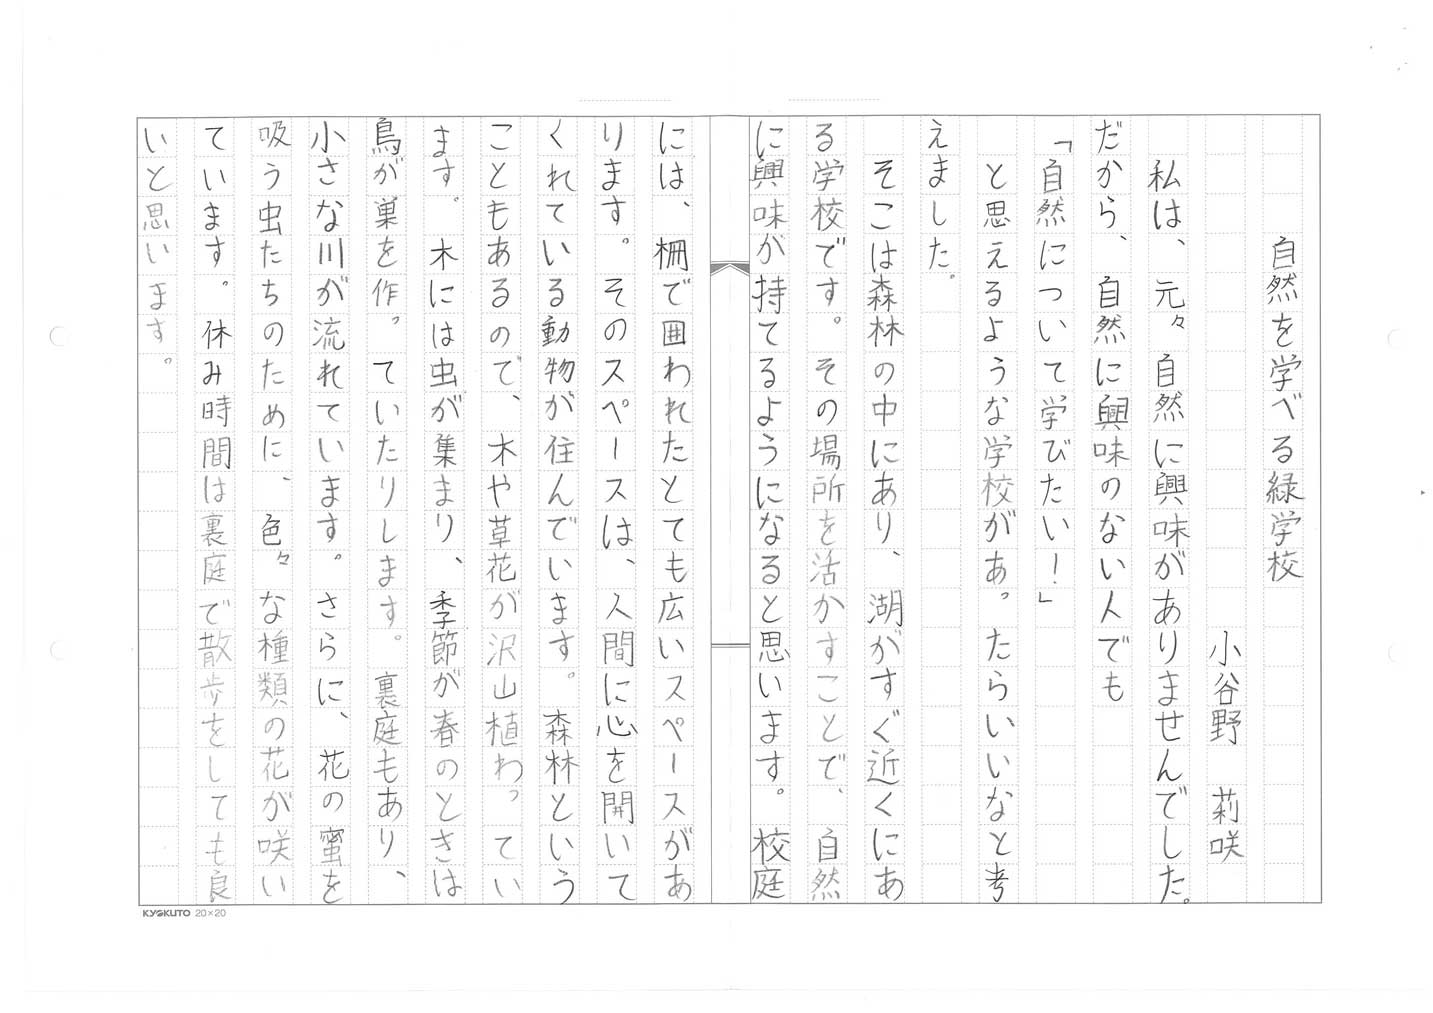 自然を学べる緑学校
小谷野 莉咲
私は、元々自然に興味がありませんでした。
だから、自然に興味のない人でも
「自然について学びたい!」
と思えるような学校があったらいいなと考
えました。
そこは森林の中にあり、湖がすぐ近くにあ
る学校です。その場所を活かすことで、自然
に興味が持てるようになると思います。校庭
には、柵で囲われたとても広いスペースがあ
ります。そのスペースは、人間に心を開いて
くれている動物が住んでいます。森林という
こともあるので、木や草花が沢山植わってい
ます。木には虫が集まり、季節が春のときは
鳥が巣を作っていたりします。裏庭もあり、
小さな川が流れています。さらに、花の蜜を
吸う虫たちのために、色々な種類の花が咲い
ています。休み時間は裏庭で散歩をしても良
いと思います。
KYOKUTO 20×20